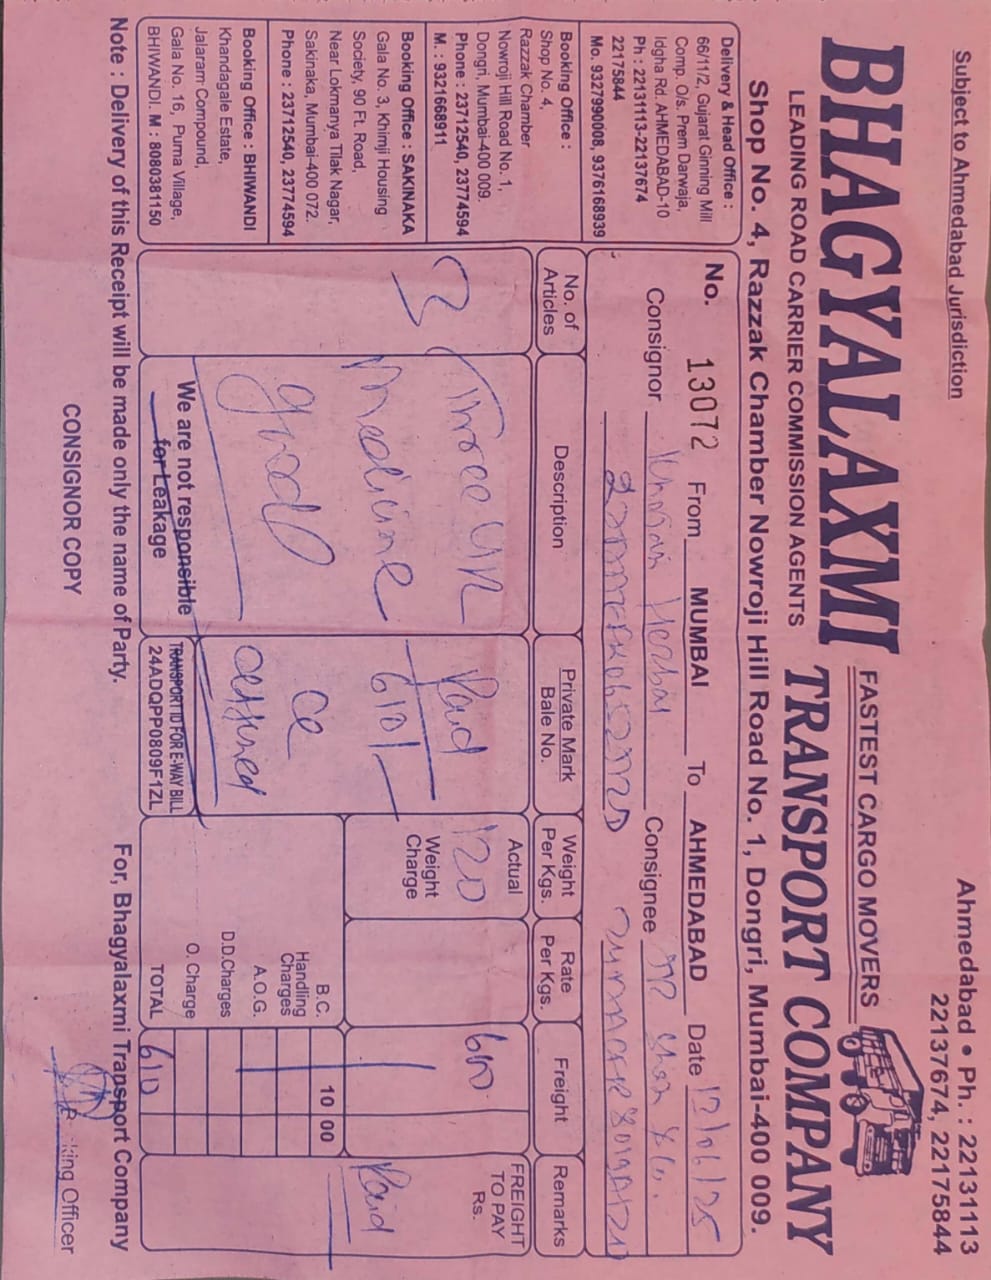 Subject to Ahmedabad Jurisdiction
Ahmedabad • Ph.: 22131113
22137674, 22175844
BHAGYALAXMI TRANSPORT COMPANY
FASTEST CARGO MOVERS
LEADING ROAD CARRIER COMMISSION AGENTS
Shop No. 4, Razzak Chamber Nowroji Hill Road No. 1, Dongri, Mumbai-400 009.
Delivery & Head Office :
66/11/2, Gujarat Ginning Mill
Comp. O/s. Prem Darwaja,
Idgha Rd. AHMEDABAD-10
Ph : 22131113-22137674
22175844
Mo. 9327990008, 9376168939
Booking Office :
Shop No. 4,
Razzak Chamber
Nowroji Hill Road No. 1,
Dongri, Mumbai-400 009.
Phone : 23712540, 23774594
M. : 9321668911
Booking Office : SAKINAKA
Gala No. 3, Khimji Housing
Society, 90 Ft. Road,
Near Lokmanya Tilak Nagar,
Sakinaka, Mumbai-400 072.
Phone : 23712540, 23774594
Booking Office : BHIWANDI
Khandagale Estate,
Jalaram Compound,
Gala No. 16, Purna Village,
BHIWANDI. M : 8080381150
No. 13072 From MUMBAI To AHMEDABAD Date 12/06/25
Consignor Consignee
No. of Articles
Description
Private Mark Bale No.
Weight Per Kgs.
Rate Per Kgs.
Freight
Remarks
3
Three
Medicine
good
Paid
610/-
Actual
120
Weight Charge
610
FREIGHT TO PAY Rs.
Paid
B.C. 10 00
Handling Charges
A.O.G.
D.D.Charges
O. Charge
TOTAL 610
We are not responsible
for Leakage
TRANSPORT ID FOR E-WAY BILL
24ADQPP0809F1ZL
Note : Delivery of this Receipt will be made only the name of Party.
For, Bhagyalaxmi Transport Company
CONSIGNOR COPY
king Officer